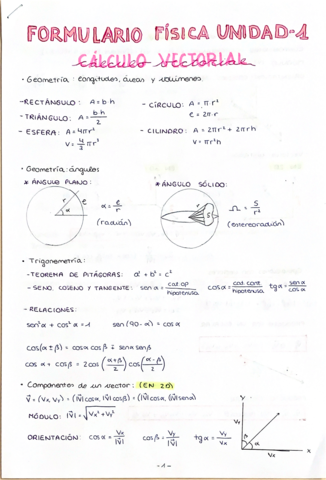 FORMULARIO FÍSICA UNIDAD-1
CÁLCULO VECTORIAL
• Geometría: longitudes, áreas y volúmenes.
-RECTÁNGULO: A = b·h
-CÍRCULO: A = π·r²
ℓ = 2π·r
-TRIÁNGULO: A = b·h/2
-ESFERA: A = 4πr²
V = 4/3 πr³
-CILINDRO: A = 2πr² + 2πrh
V = πr²h
• Geometría: ángulos
* ÁNGULO PLANO:
r e α
α = e/r
(radián)
* ÁNGULO SÓLIDO:
r S
Ω = S/r²
(estereoradián)
• Trigonometría:
-TEOREMA DE PITÁGORAS: a² + b² = c²
-SENO, COSENO Y TANGENTE: sen α = cat.op/hipotenusa cos α = cat.cont/hipotenusa tg α = sen α/cos α
-RELACIONES:
sen²α + cos²α = 1 sen(90-α) = cos α
cos(α ± β) = cos α cos β ∓ sen α sen β
cos α + cos β = 2cos(α+β/2) cos(α-β/2)
• Componentes de un vector: (EN 2D)
v⃗ = (Vx, Vy) = (|v⃗| cos α, |v⃗| cos β) = (|v⃗| cos α, |v⃗| sen α)
MÓDULO: |v⃗| = √Vx² + Vy²
ORIENTACIÓN: cos α = Vx/|v⃗| cos β = Vy/|v⃗| tg α = Vy/Vx
Y
Vy
β
α
Vx
X
-1-